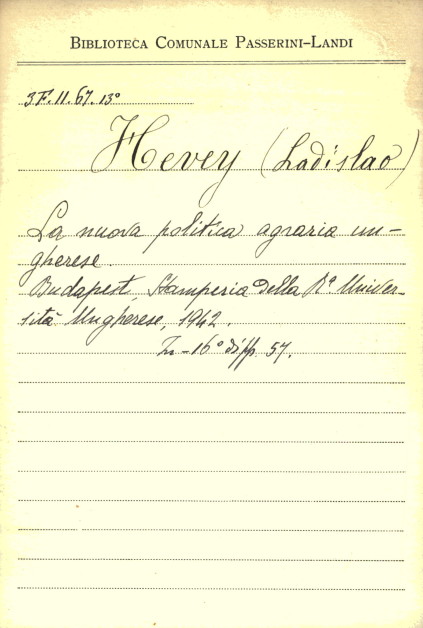 BIBLIOTECA COMUNALE PASSERINI-LANDI
3F.11.67.13°
Hevey (Ladislao)
La nuova politica agraria un-
gherese
Budapest, Stamperia della Rª Univer-
sità Ungherese, 1942.
In-16° di pp. 57.